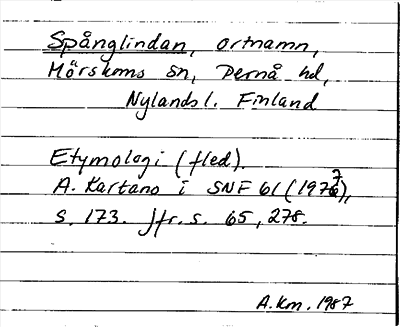 Spånglindan, ortnamn,
Mörskoms sn, Pernå hd,
Nylands l. Finland
Etymologi (fled).
A. Kartano i SNF 61 (1977),
s. 173. Jfr. s. 65, 278.
A.Km. 1987